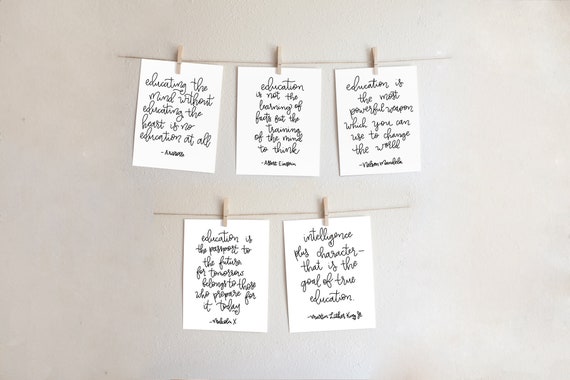 educating the
mind without
educating the
heart is no
education at all
- Aristotle
education
is not the
learning of
facts but the
training
of the mind
to think
- Albert Einstein
education is
the most
powerful weapon
which you can
use to change
the world
- Nelson Mandela
education is
the passport to
the future
for tomorrow
belongs to those
who prepare for
it today
- Malcolm X
intelligence
plus character-
that is the
goal of true
education.
- Martin Luther King Jr.